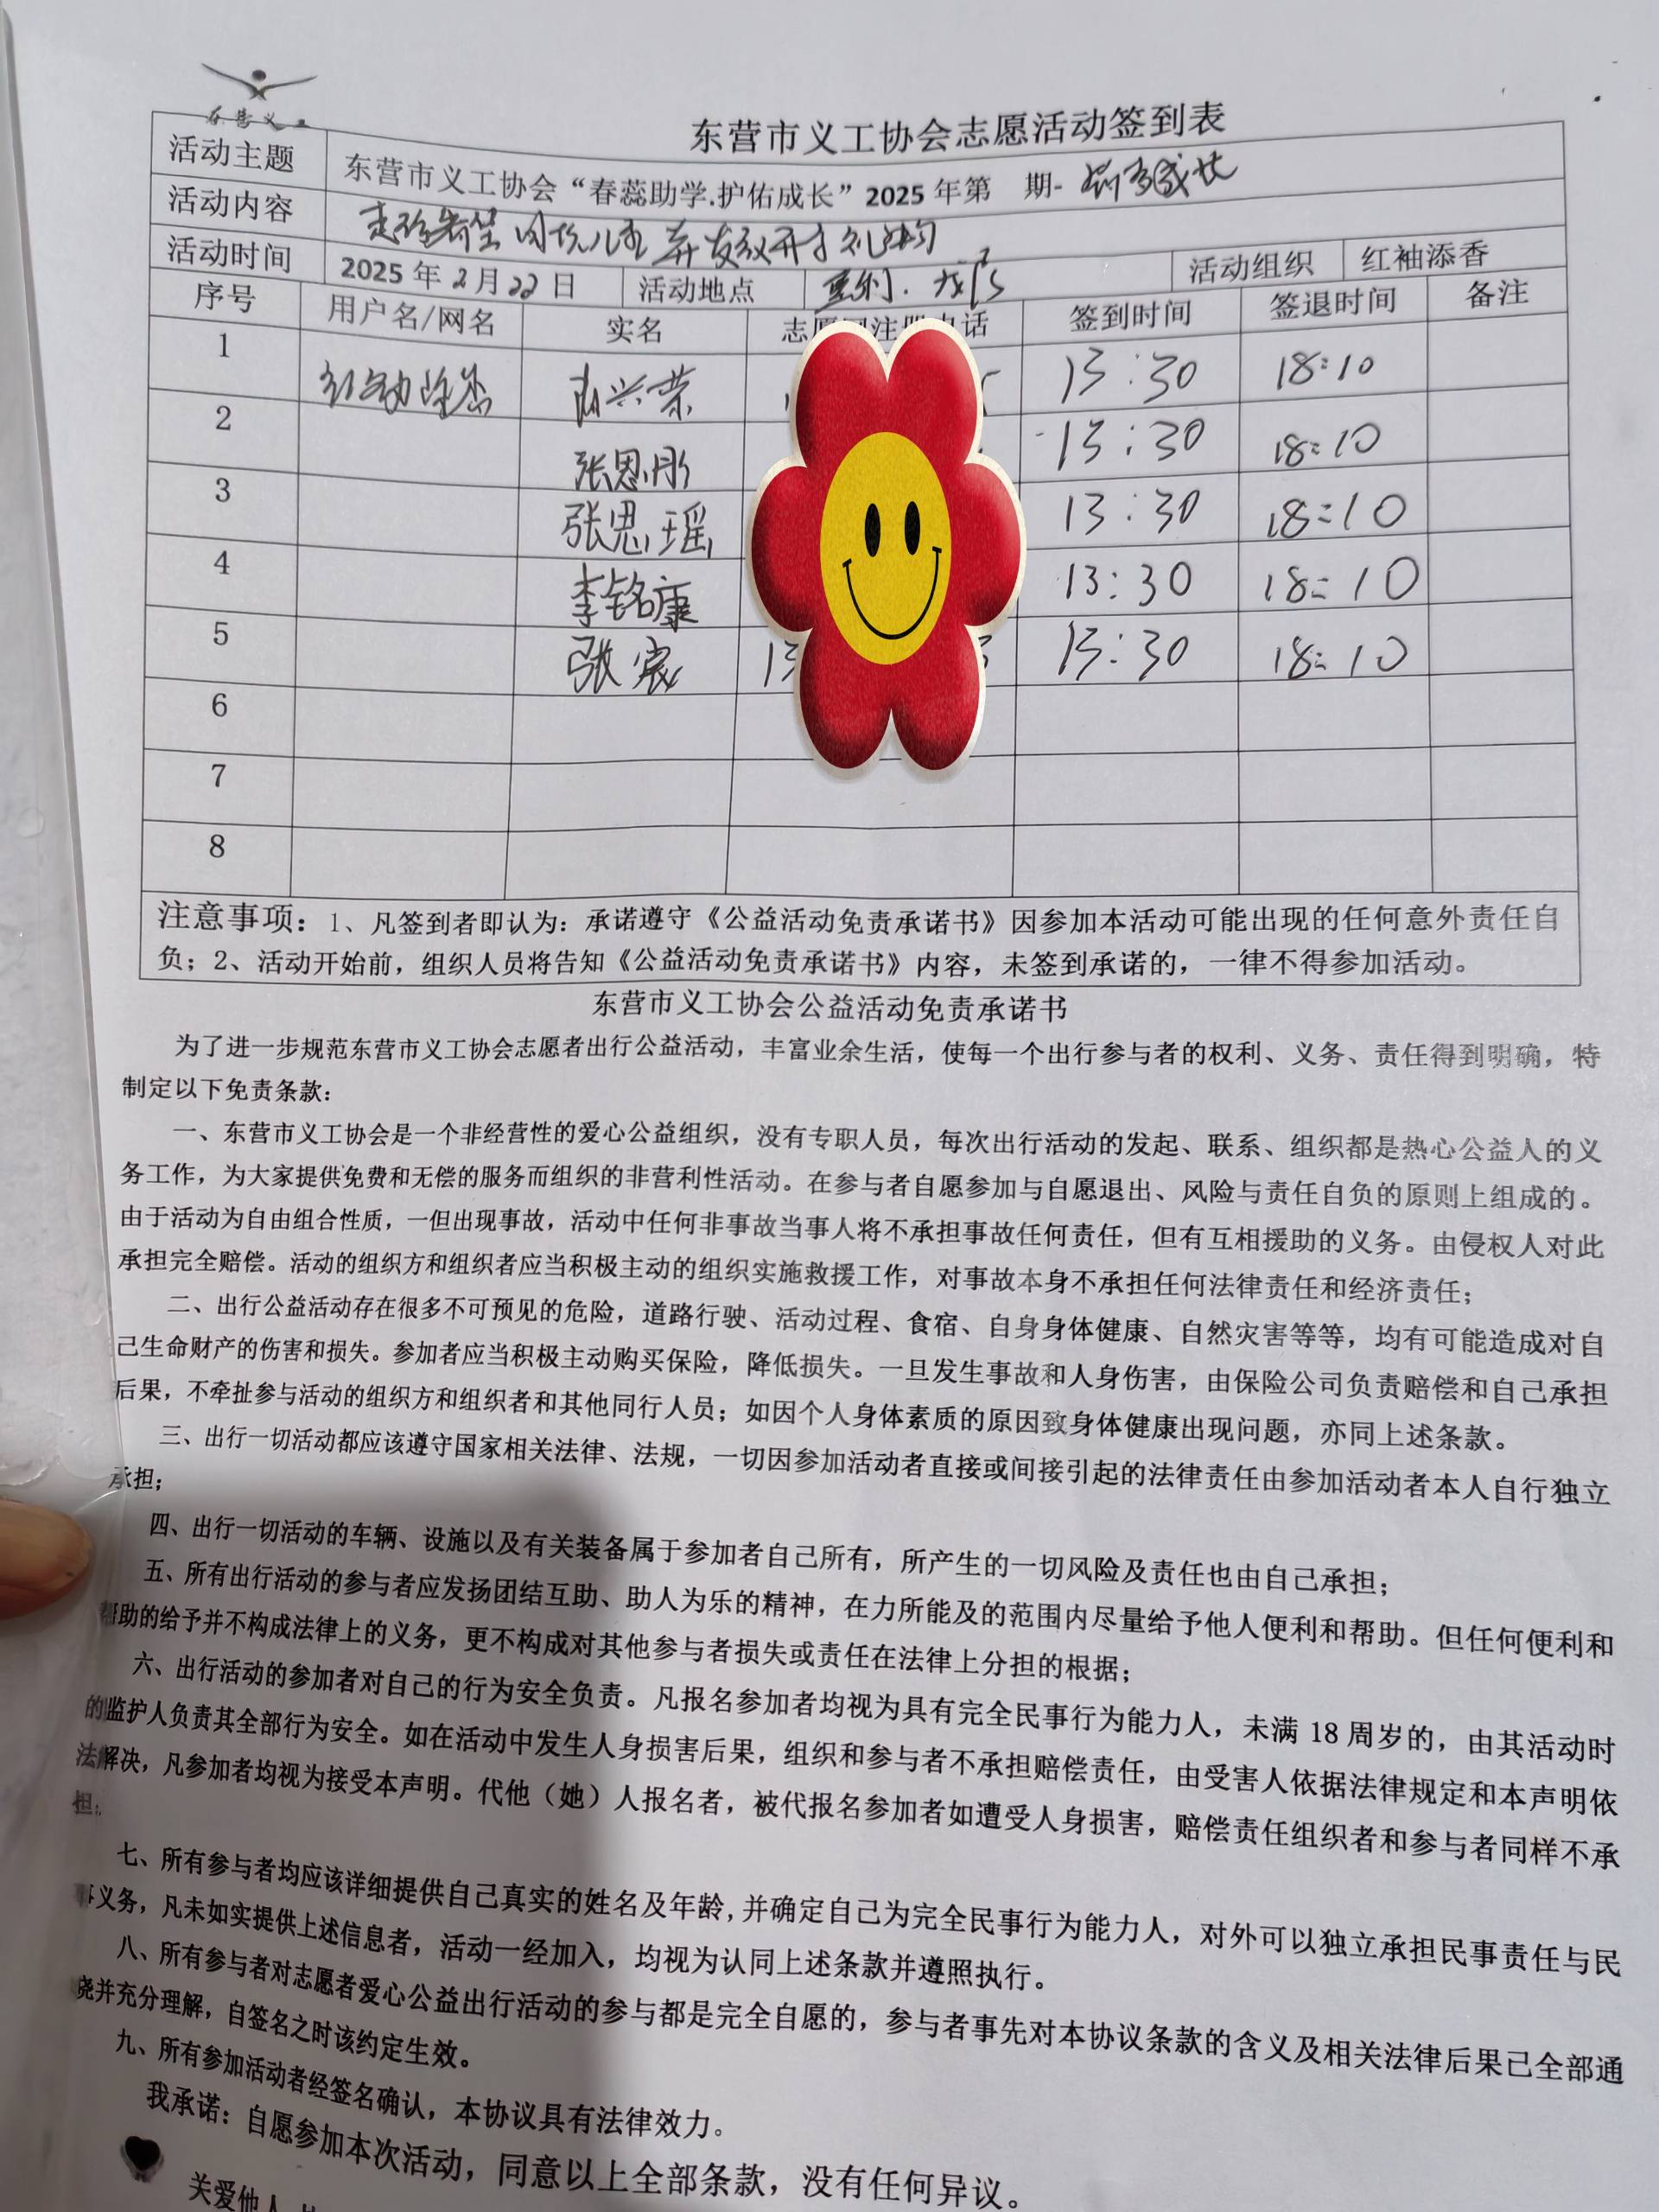 东营义工
东营市义工协会志愿活动签到表
活动主题 东营市义工协会“春蕊助学.护佑成长”2025年第 期- 成长
活动内容 走 儿童 并发放开学礼物
活动时间 2025年2月22日 活动地点 垦利. 活动组织 红袖添香
序号 用户名/网名 实名 志愿 注册电话 签到时间 签退时间 备注
1 兴荣 13:30 18:10
2 张恩彤 13:30 18:10
3 张思瑶 13:30 18:10
4 李铭康 13:30 18:10
5 张宸 13 3 13:30 18:10
6
7
8
注意事项：1、凡签到者即认为：承诺遵守《公益活动免责承诺书》因参加本活动可能出现的任何意外责任自
负；2、活动开始前，组织人员将告知《公益活动免责承诺书》内容，未签到承诺的，一律不得参加活动。
东营市义工协会公益活动免责承诺书
为了进一步规范东营市义工协会志愿者出行公益活动，丰富业余生活，使每一个出行参与者的权利、义务、责任得到明确，特
制定以下免责条款：
一、东营市义工协会是一个非经营性的爱心公益组织，没有专职人员，每次出行活动的发起、联系、组织都是热心公益人的义
务工作，为大家提供免费和无偿的服务而组织的非营利性活动。在参与者自愿参加与自愿退出、风险与责任自负的原则上组成的。
由于活动为自由组合性质，一但出现事故，活动中任何非事故当事人将不承担事故任何责任，但有互相援助的义务。由侵权人对此
承担完全赔偿。活动的组织方和组织者应当积极主动的组织实施救援工作，对事故本身不承担任何法律责任和经济责任；
二、出行公益活动存在很多不可预见的危险，道路行驶、活动过程、食宿、自身身体健康、自然灾害等等，均有可能造成对自
己生命财产的伤害和损失。参加者应当积极主动购买保险，降低损失。一旦发生事故和人身伤害，由保险公司负责赔偿和自己承担
后果，不牵扯参与活动的组织方和组织者和其他同行人员；如因个人身体素质的原因致身体健康出现问题，亦同上述条款。
三、出行一切活动都应该遵守国家相关法律、法规，一切因参加活动者直接或间接引起的法律责任由参加活动者本人自行独立
承担；
四、出行一切活动的车辆、设施以及有关装备属于参加者自己所有，所产生的一切风险及责任也由自己承担；
五、所有出行活动的参与者应发扬团结互助、助人为乐的精神，在力所能及的范围内尽量给予他人便利和帮助。但任何便利和
帮助的给予并不构成法律上的义务，更不构成对其他参与者损失或责任在法律上分担的根据；
六、出行活动的参加者对自己的行为安全负责。凡报名参加者均视为具有完全民事行为能力人，未满18周岁的，由其活动时
的监护人负责其全部行为安全。如在活动中发生人身损害后果，组织和参与者不承担赔偿责任，由受害人依据法律规定和本声明依
法解决，凡参加者均视为接受本声明。代他（她）人报名者，被代报名参加者如遭受人身损害，赔偿责任组织者和参与者同样不承
担；
七、所有参与者均应该详细提供自己真实的姓名及年龄,并确定自己为完全民事行为能力人，对外可以独立承担民事责任与民
事义务，凡未如实提供上述信息者，活动一经加入，均视为认同上述条款并遵照执行。
八、所有参与者对志愿者爱心公益出行活动的参与都是完全自愿的，参与者事先对本协议条款的含义及相关法律后果已全部通
晓并充分理解，自签名之时该约定生效。
九、所有参加活动者经签名确认，本协议具有法律效力。
我承诺：自愿参加本次活动，同意以上全部条款，没有任何异议。
关爱他人